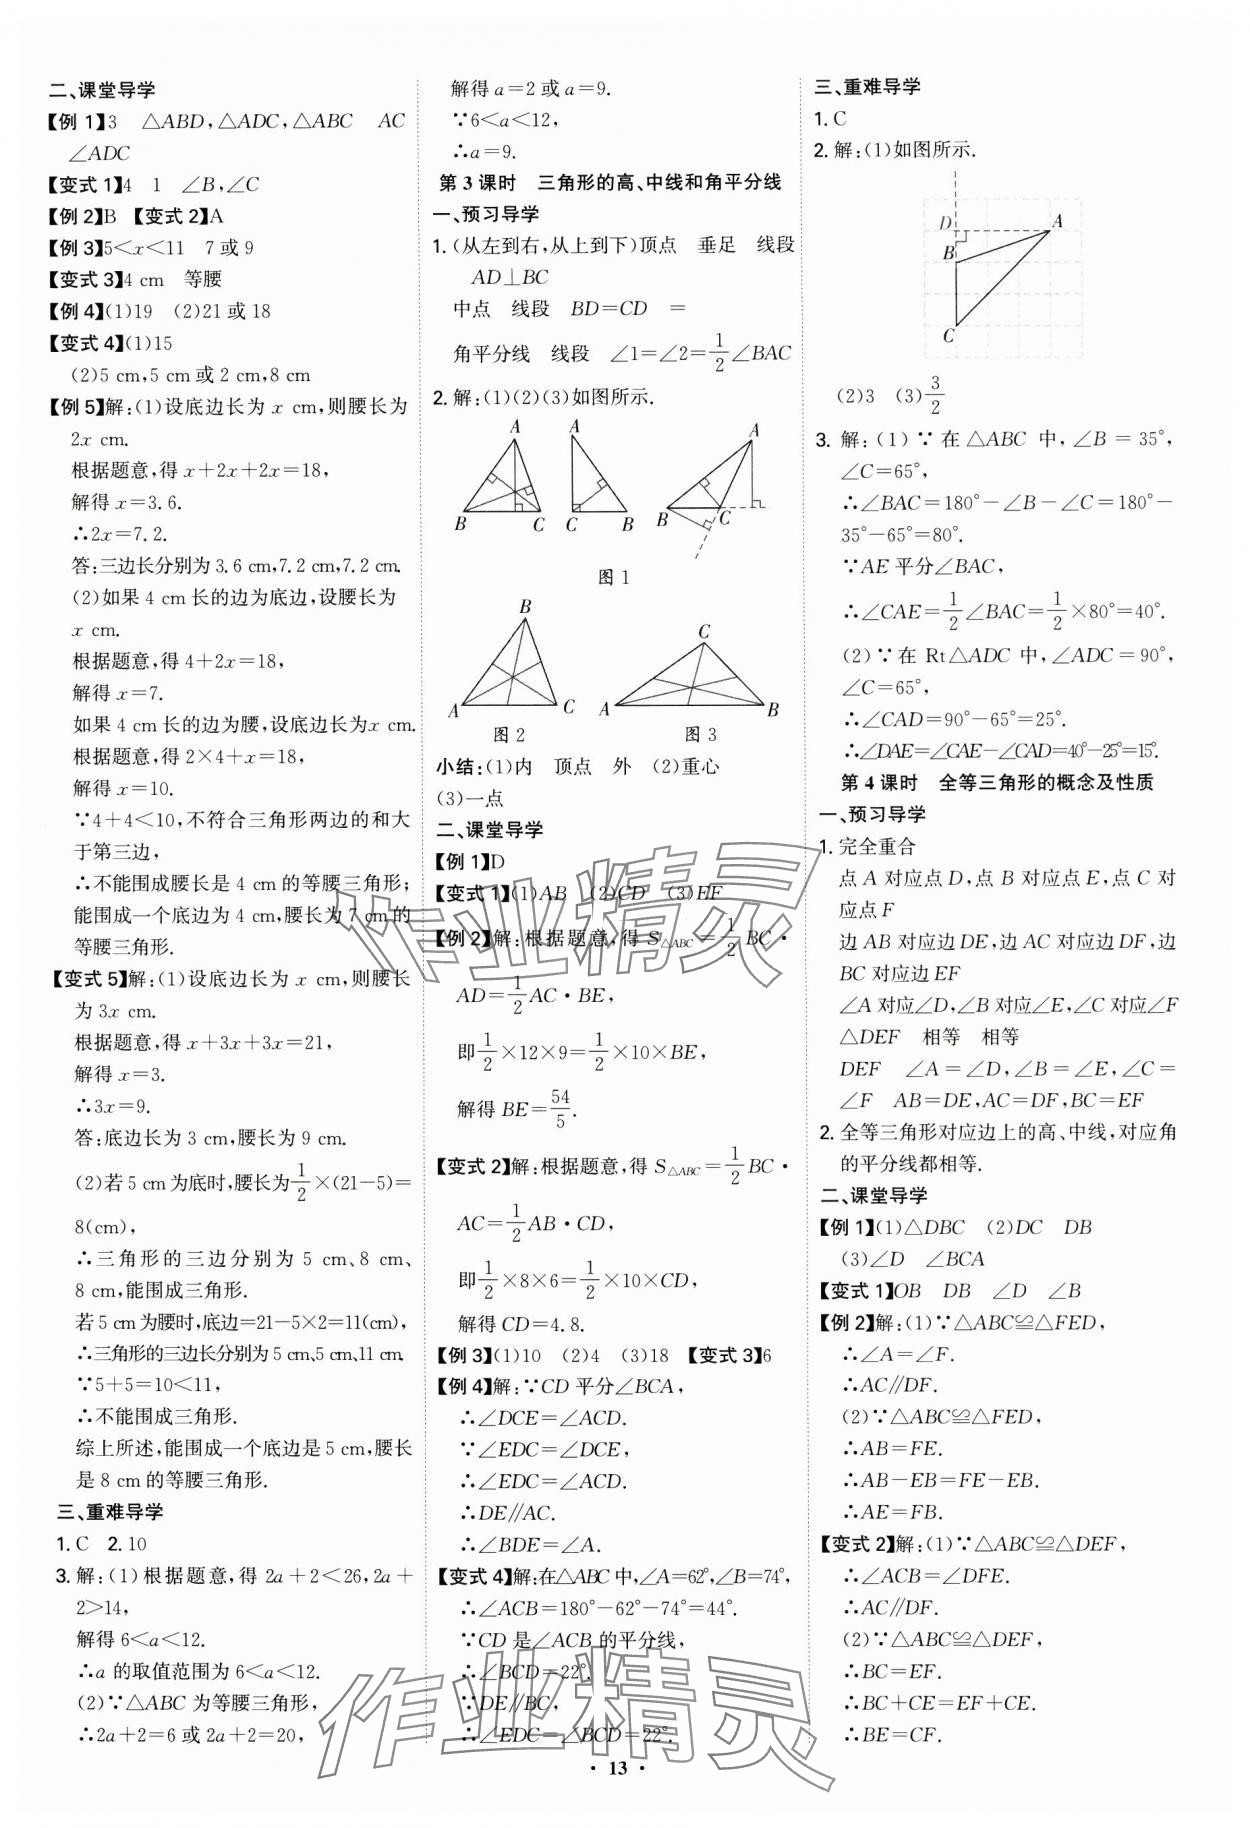 二、课堂导学
【例 1】3　△ABD,△ADC,△ABC　AC
∠ADC
【变式 1】4　1　∠B,∠C
【例 2】B　【变式 2】A
【例 3】5＜x＜11　7 或 9
【变式 3】4 cm　等腰
【例 4】(1)19　(2)21 或 18
【变式 4】(1)15
(2)5 cm,5 cm 或 2 cm,8 cm
【例 5】解:(1)设底边长为 x cm,则腰长为
2x cm.
根据题意,得 x＋2x＋2x＝18,
解得 x＝3.6.
∴2x＝7.2.
答:三边长分别为 3.6 cm,7.2 cm,7.2 cm.
(2)如果 4 cm 长的边为底边,设腰长为
x cm.
根据题意,得 4＋2x＝18,
解得 x＝7.
如果 4 cm 长的边为腰,设底边长为x cm.
根据题意,得 2×4＋x＝18,
解得 x＝10.
∵4＋4＜10,不符合三角形两边的和大
于第三边,
∴不能围成腰长是 4 cm 的等腰三角形;
能围成一个底边为 4 cm,腰长为 7 cm 的
等腰三角形.
【变式 5】解:(1)设底边长为 x cm,则腰长
为 3x cm.
根据题意,得 x＋3x＋3x＝21,
解得 x＝3.
∴3x＝9.
答:底边长为 3 cm,腰长为 9 cm.
(2)若 5 cm 为底时,腰长为1/2×(21－5)＝
8(cm),
∴三角形的三边分别为 5 cm、8 cm、
8 cm,能围成三角形.
若 5 cm 为腰时,底边＝21－5×2＝11(cm),
∴三角形的三边长分别为 5 cm、5 cm、11 cm.
∵5＋5＝10＜11,
∴不能围成三角形.
综上所述,能围成一个底边是 5 cm,腰长
是 8 cm 的等腰三角形.
三、重难导学
1. C　2. 10
3. 解:(1)根据题意,得 2a＋2＜26,2a＋
2＞14,
解得 6＜a＜12.
∴a 的取值范围为 6＜a＜12.
(2)∵△ABC 为等腰三角形,
∴2a＋2＝6 或 2a＋2＝20,
解得 a＝2 或 a＝9.
∵6＜a＜12,
∴a＝9.
第 3 课时　三角形的高、中线和角平分线
一、预习导学
1. (从左到右,从上到下)顶点　垂足　线段
AD⊥BC
中点　线段　BD＝CD　＝
角平分线　线段　∠1＝∠2＝1/2∠BAC
2. 解:(1)(2)(3)如图所示.
A A A
B C C B B C
图 1
B
A C
C
A B
图 2 图 3
小结:(1)内　顶点　外　(2)重心
(3)一点
二、课堂导学
【例 1】D
【变式 1】(1)AB　(2)CD　(3)EF
【例 2】解:根据题意,得 S△ABC＝1/2BC·
AD＝1/2AC·BE,
即1/2×12×9＝1/2×10×BE,
解得 BE＝54/5.
【变式 2】解:根据题意,得 S△ABC＝1/2BC·
AC＝1/2AB·CD,
即1/2×8×6＝1/2×10×CD,
解得 CD＝4.8.
【例 3】(1)10　(2)4　(3)18　【变式 3】6
【例 4】解:∵CD 平分∠BCA,
∴∠DCE＝∠ACD.
∵∠EDC＝∠DCE,
∴∠EDC＝∠ACD.
∴DE∥AC.
∴∠BDE＝∠A.
【变式 4】解:在△ABC 中,∠A＝62°,∠B＝74°,
∴∠ACB＝180°－62°－74°＝44°.
∵CD 是∠ACB 的平分线,
∴∠BCD＝22°.
∵DE∥BC,
∴∠EDC＝∠BCD＝22°.
三、重难导学
1. C
2. 解:(1)如图所示.
D A
B
C
(2)3　(3)3/2
3. 解:(1)∵在△ABC 中,∠B＝35°,
∠C＝65°,
∴∠BAC＝180°－∠B－∠C＝180°－
35°－65°＝80°.
∵AE 平分∠BAC,
∴∠CAE＝1/2∠BAC＝1/2×80°＝40°.
(2)∵在 Rt△ADC 中,∠ADC＝90°,
∠C＝65°,
∴∠CAD＝90°－65°＝25°.
∴∠DAE＝∠CAE－∠CAD＝40°－25°＝15°.
第 4 课时　全等三角形的概念及性质
一、预习导学
1. 完全重合
点 A 对应点 D,点 B 对应点 E,点 C 对
应点 F
边 AB 对应边 DE,边 AC 对应边 DF,边
BC 对应边 EF
∠A 对应∠D,∠B 对应∠E,∠C 对应∠F
△DEF　相等　相等
DEF　∠A＝∠D,∠B＝∠E,∠C＝
∠F　AB＝DE,AC＝DF,BC＝EF
2. 全等三角形对应边上的高、中线,对应角
的平分线都相等.
二、课堂导学
【例 1】(1)△DBC　(2)DC　DB
(3)∠D　∠BCA
【变式 1】OB　DB　∠D　∠B
【例 2】解:(1)∵△ABC≌△FED,
∴∠A＝∠F.
∴AC∥DF.
(2)∵△ABC≌△FED,
∴AB＝FE.
∴AB－EB＝FE－EB.
∴AE＝FB.
【变式 2】解:(1)∵△ABC≌△DEF,
∴∠ACB＝∠DFE.
∴AC∥DF.
(2)∵△ABC≌△DEF,
∴BC＝EF.
∴BC＋CE＝EF＋CE.
∴BE＝CF.
作业精灵
作业精灵
· 13 ·